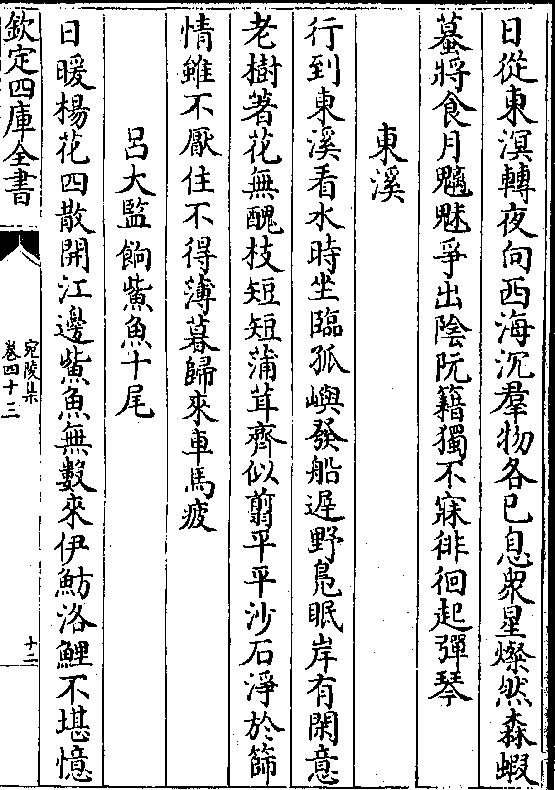 日從東溟轉夜向西海沉羣物各已息衆星燦然森蝦
蟇將食月魑魅爭出陰阮籍獨不寐徘徊起彈琴
東溪
行到東溪看水時坐臨孤嶼發船遲野鳬眠岸有閑意
老樹著花無醜枝短短蒲茸齊似翦平平沙石淨於篩
情雖不厭住不得薄暮歸來車馬疲
呂大監餉鮆魚十尾
日暖楊花四散開江邊鮆魚無數來伊魴洛鯉不堪憶
欽定四庫全書
宛陵集
卷四十三
十二